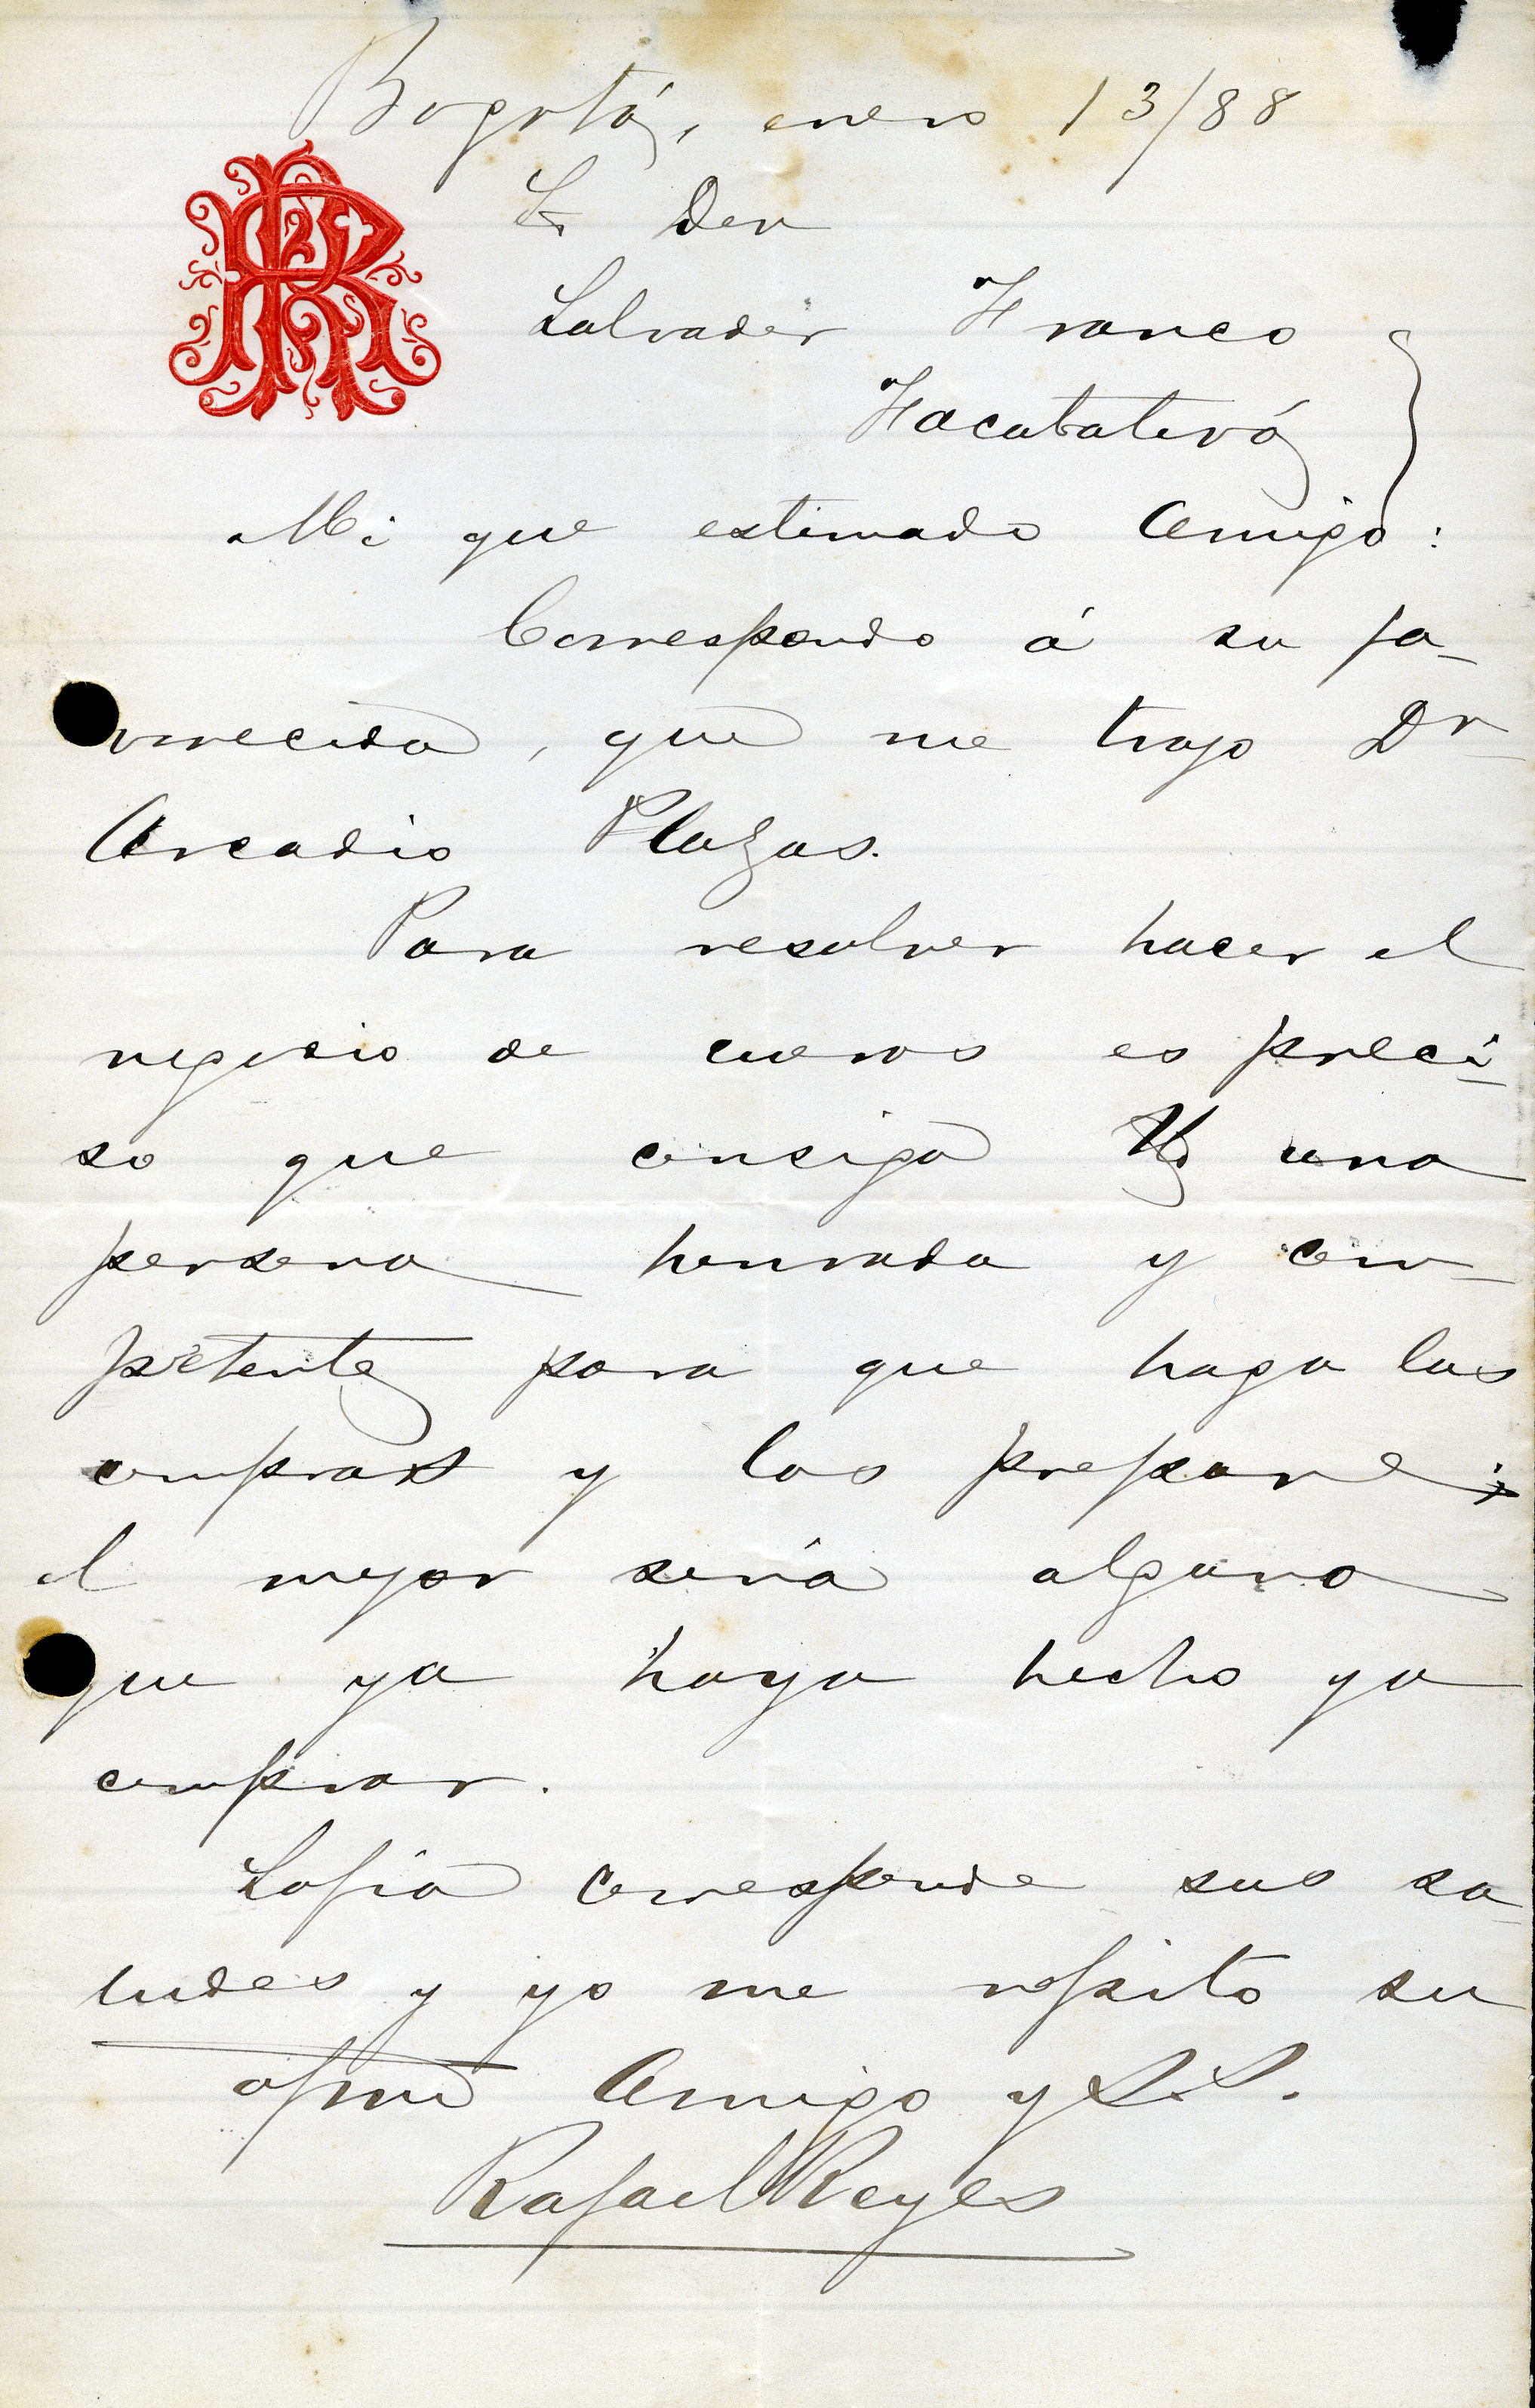 Bogotá, enero 13/88
RR
Sr Don
Salvador Franco
Facatativá
Mi que estimado amigo:
Correspondo á su fa-
vorecida, que me trajo Dr
Arcadio Plazas.
Para resolver hacer el
negocio de cueros es preci-
so que consiga Ud una
persona honrada y com-
petente para que haga las
compras y los prepare;
el mejor sería alguno
que ya haya hecho ya
comprar.
Sofía corresponde sus sa-
ludos y yo me repito su
afmo amigo y S.S.
Rafael Reyes